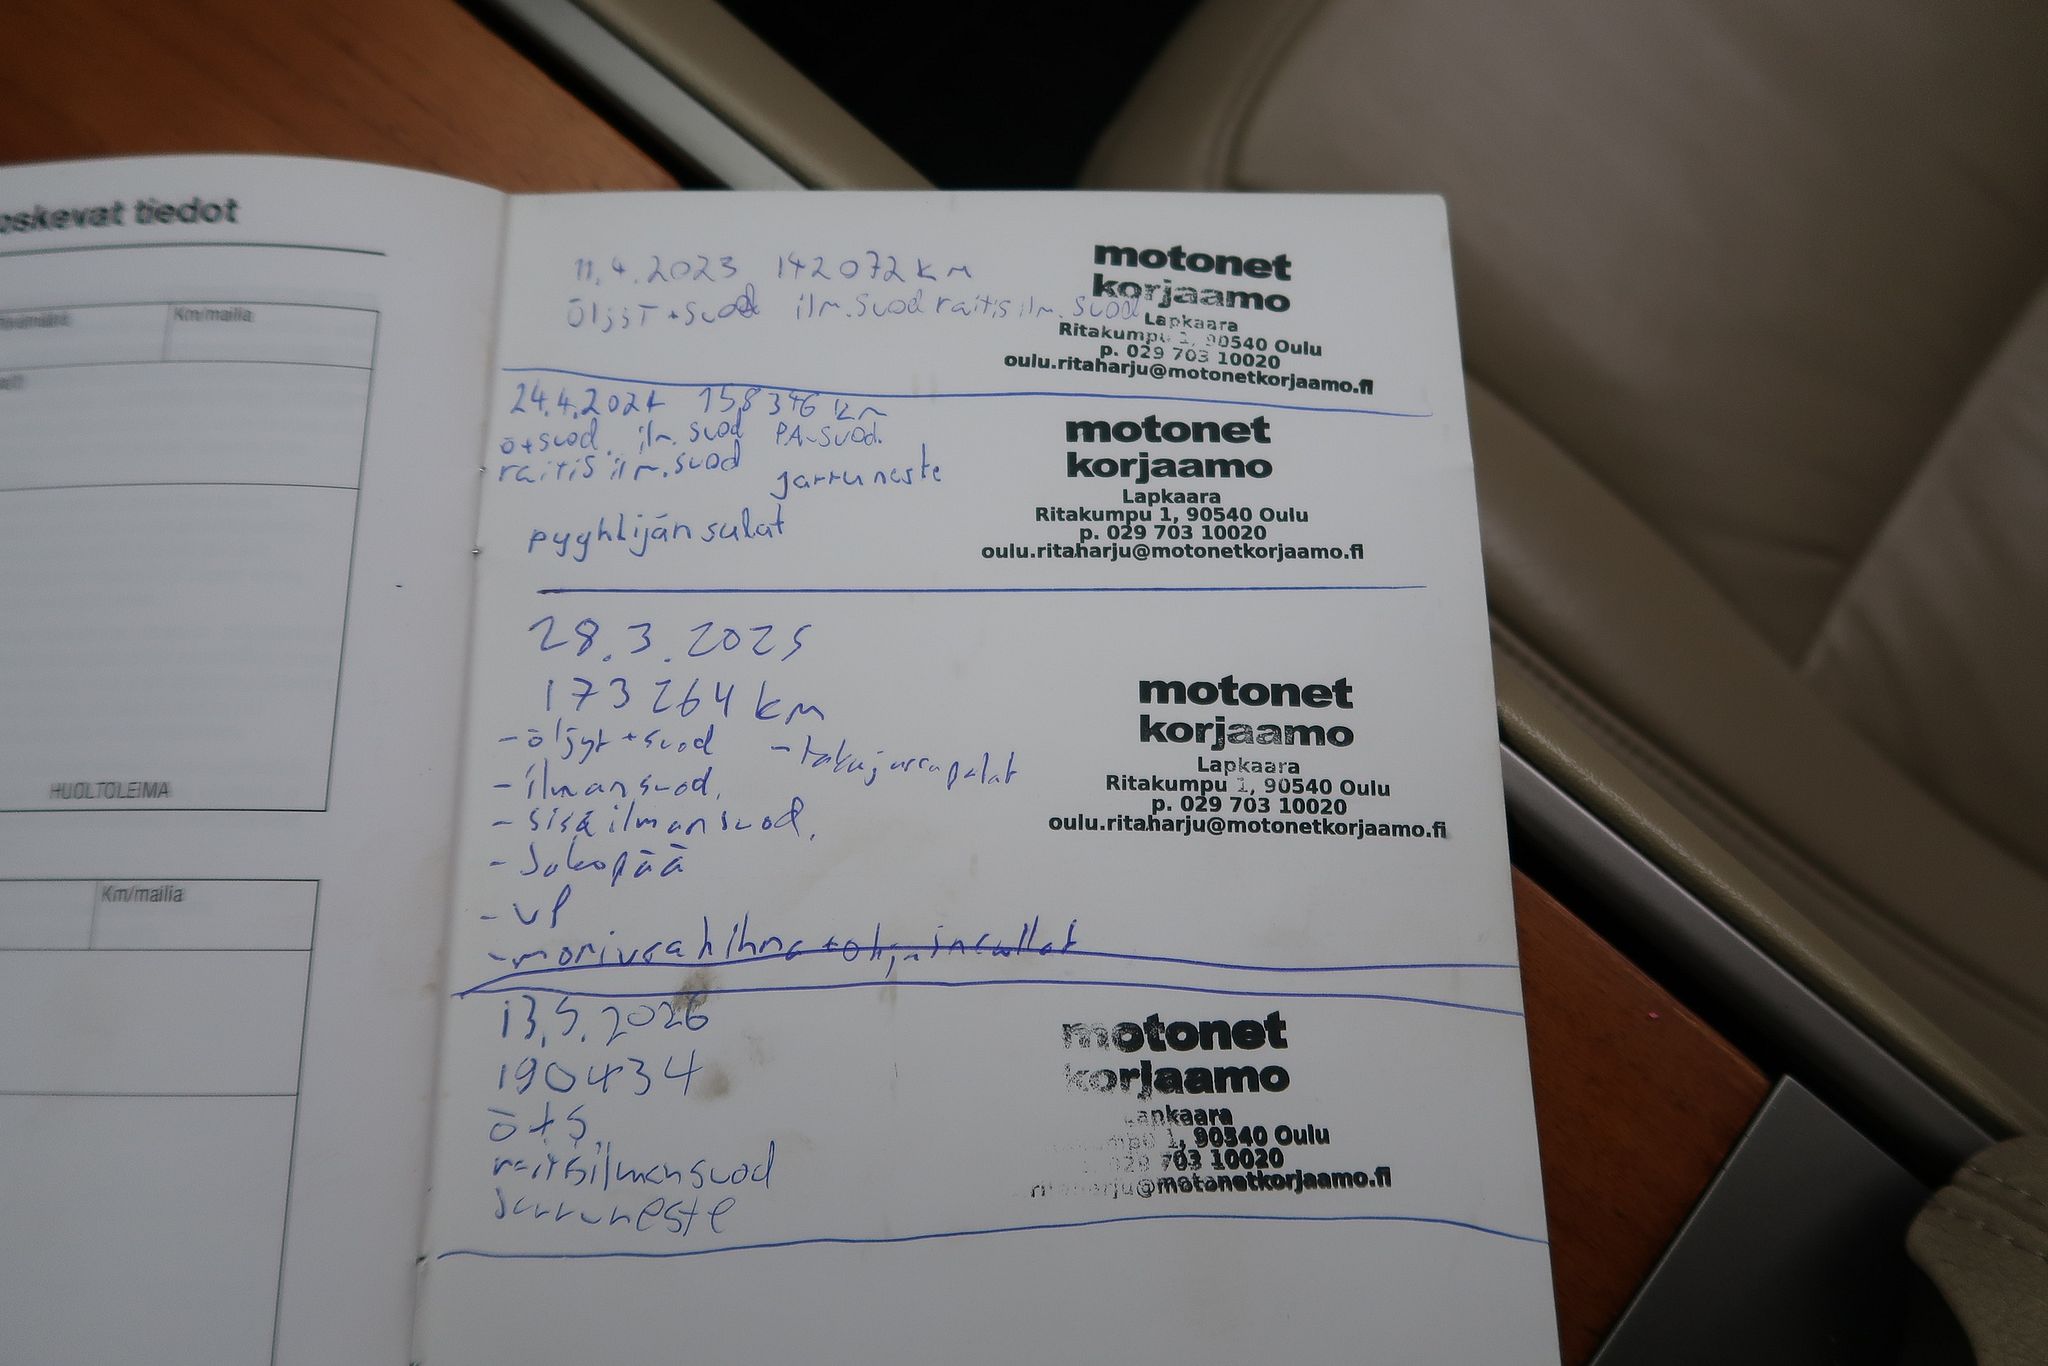 oskevat tiedot
Km/mailia
HUOLTOLEIMA
Km/mailia
11.4.2023 142072 km
öljyt + suod ilm.suod raitis ilm.suod
motonet
korjaamo
Lapkaara
Ritakumpu 1, 90540 Oulu
p. 029 703 10020
oulu.ritaharju@motonetkorjaamo.fi
24.4.2024 158346 km
ö+suod. ilm. suod PA-suod.
raitis ilm.suod jarruneste
pyyhkijän sulat
motonet
korjaamo
Lapkaara
Ritakumpu 1, 90540 Oulu
p. 029 703 10020
oulu.ritaharju@motonetkorjaamo.fi
28.3.2025
173264 km
- öljyt + suod - takajarrupalat
- ilmansuod.
- sisäilmansuod.
- Jakopää
- VP
- moniurahihna
motonet
korjaamo
Lapkaara
Ritakumpu 1, 90540 Oulu
p. 029 703 10020
oulu.ritaharju@motonetkorjaamo.fi
13.5.2026
190434
ö+s
raitisilmansuod
Jarruneste
motonet
korjaamo
Lapkaara
1, 90540 Oulu
029 703 10020
@motonetkorjaamo.fi